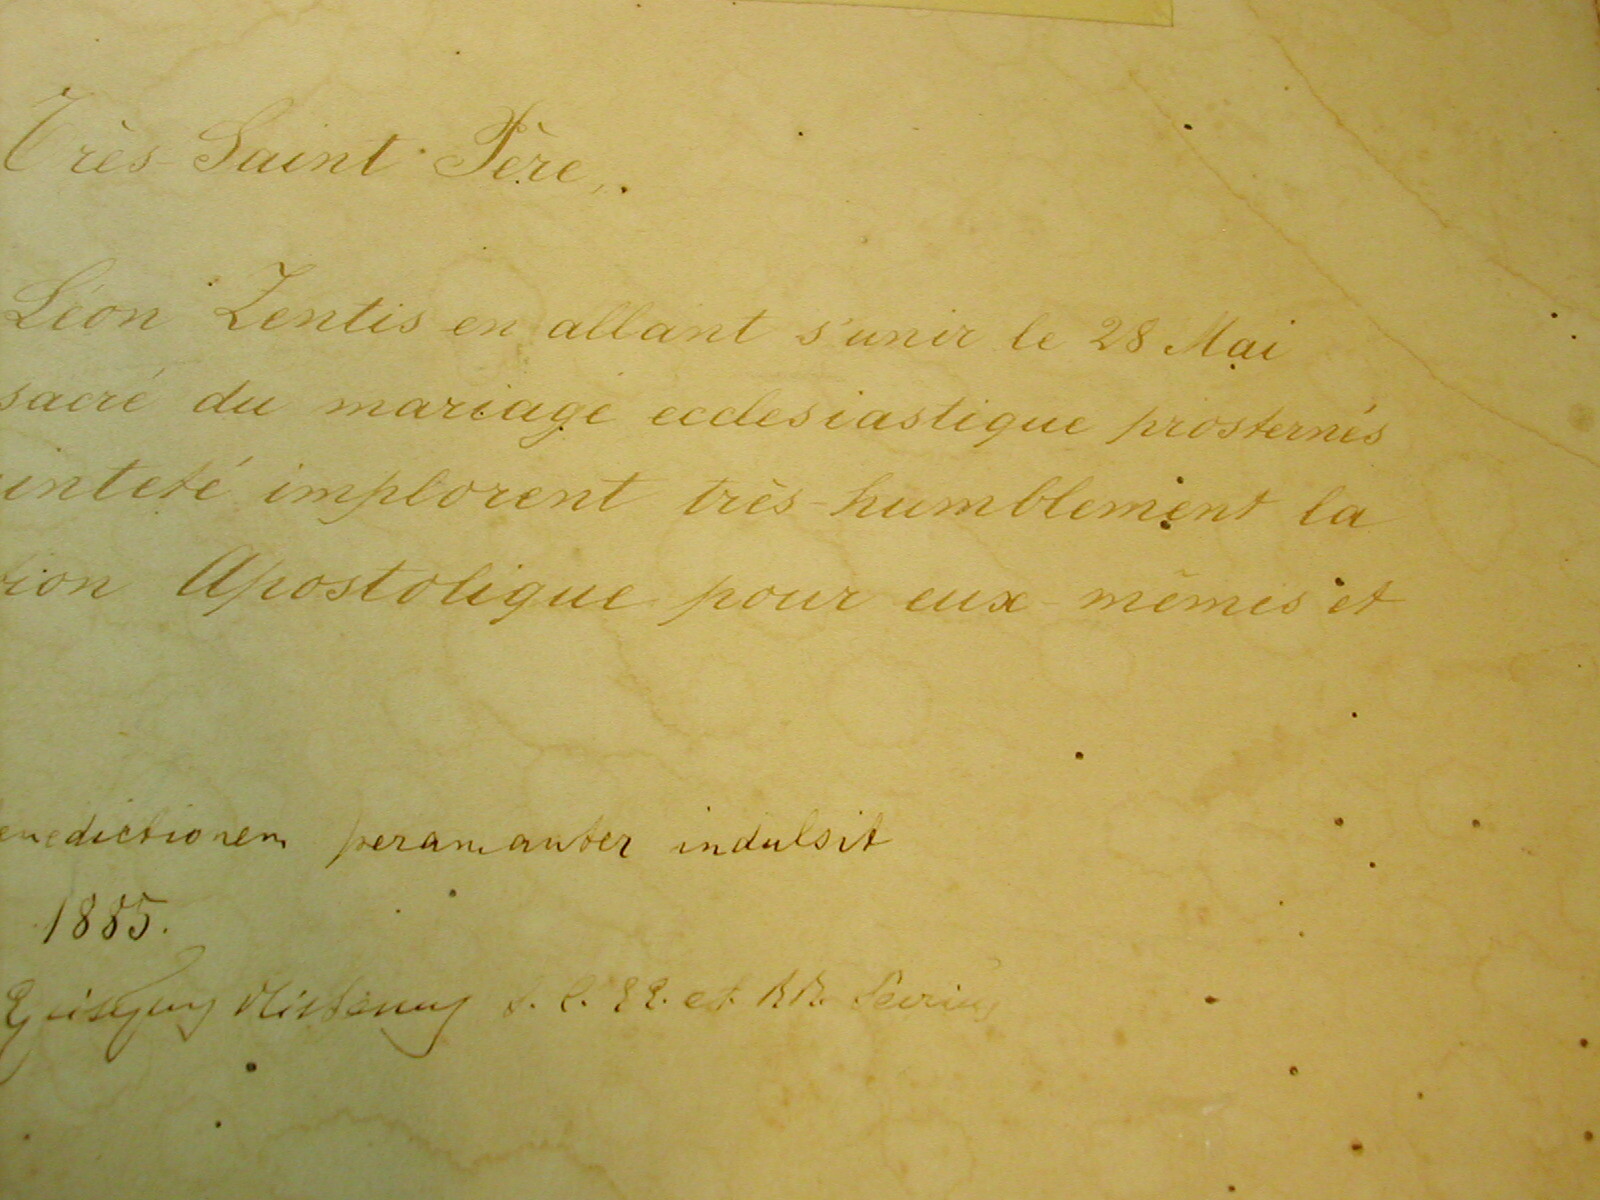 Très-Saint Père,
Léon Zentis en allant s'unir le 28 Mai
sacré du mariage ecclesiastique prosternés
inteté implorent très-humblement la
ion Apostolique pour eux-mêmes et
enedictionem peramanter indulsit
1885.
et RR.